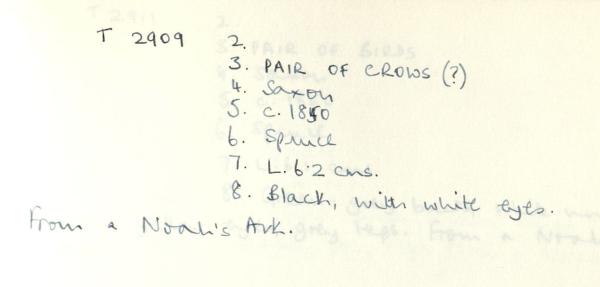 T 2909 2.
3. PAIR OF CROWS (?)
4. Saxon
5. c. 1850
6. Spruce
7. L. 6.2 cms.
8. Black, with white eyes.
From a Noah's Ark.